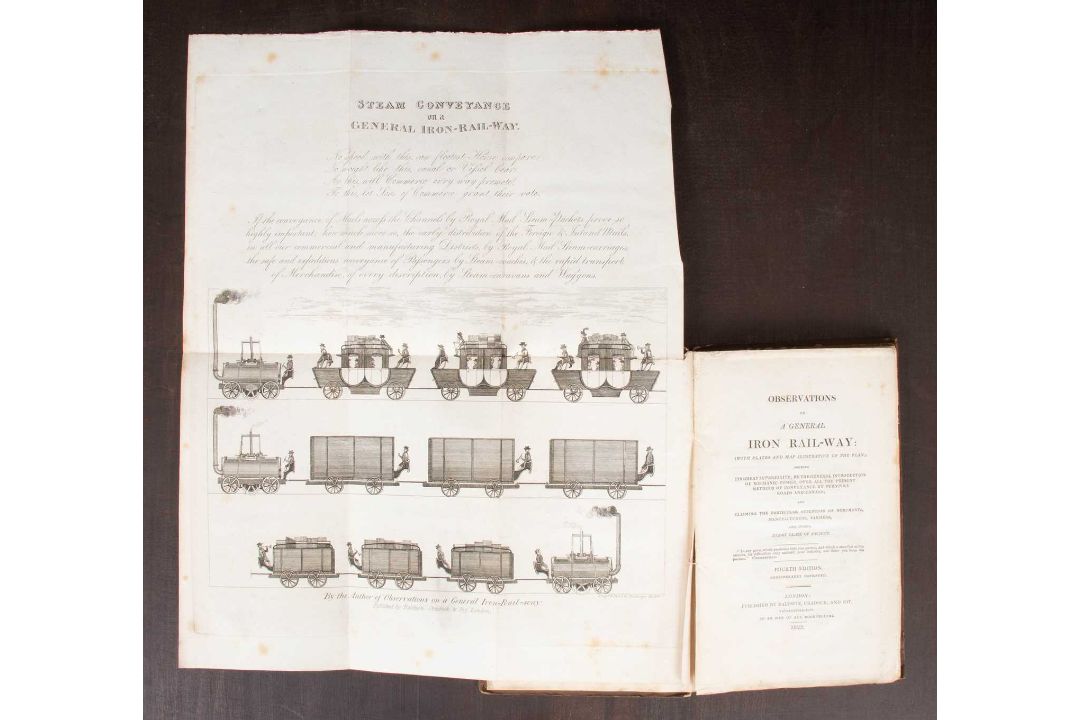 STEAM CONVEYANCE
on a
GENERAL IRON-RAIL-WAY.
No speed with this, can fleetest Horse compare;
No weight like this, canal or Vessel bear.
As this, will Commerce every way promote;
To this, let Sons of Commerce grant their vote.
If the conveyance of Mails across the Channels by Royal Mail Steam Packets prove so
highly important, how much more so, the early distribution of the Foreign & Inland Mails,
in all our commercial and manufacturing Districts, by Royal Mail Steam-carriages,
the safe and expeditious conveyance of Passengers by Steam-coaches, & the rapid transport
of Merchandise of every description, by Steam-caravans and Waggons.
By the Author of Observations on a General Iron-Rail-way
Published by Baldwin, Cradock & Joy, London.
OBSERVATIONS
ON
A GENERAL
IRON RAIL-WAY:
(WITH PLATES AND MAP ILLUSTRATIVE OF THE PLAN);
SHOWING
ITS GREAT SUPERIORITY, BY THE GENERAL INTRODUCTION
OF MECHANIC POWER, OVER ALL THE PRESENT
METHODS OF CONVEYANCE BY TURNPIKE
ROADS AND CANALS;
AND
CLAIMING THE PARTICULAR ATTENTION OF MERCHANTS,
MANUFACTURERS, FARMERS,
AND, INDEED,
EVERY CLASS OF SOCIETY.
FOURTH EDITION,
CONSIDERABLY IMPROVED.
LONDON:
PUBLISHED BY BALDWIN, CRADOCK, AND JOY,
PATERNOSTER-ROW;